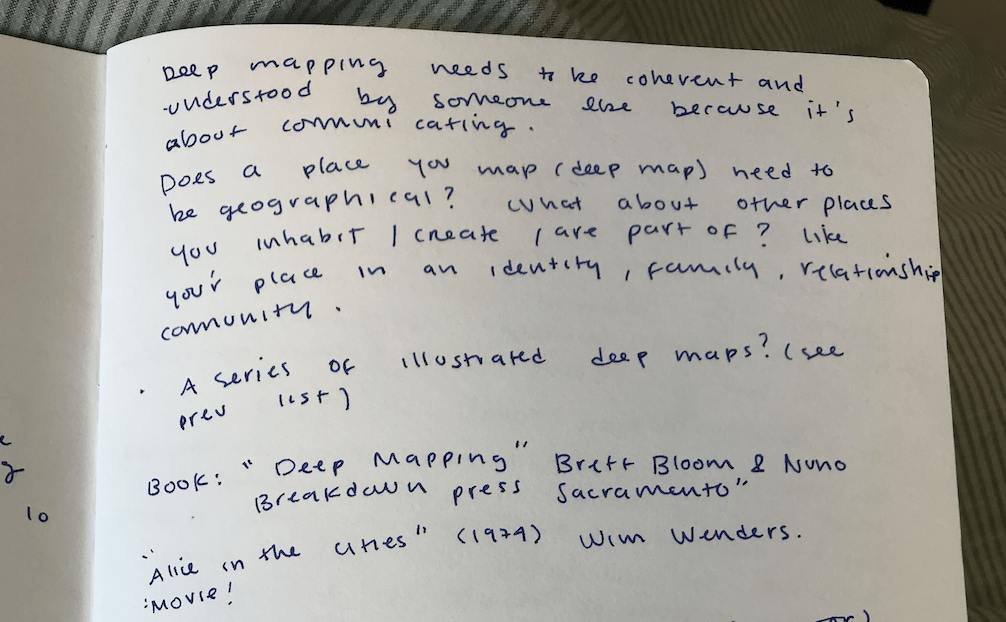 Deep mapping needs to be coherent and
understood by someone else because it's
about communicating.
Does a place you map (deep map) need to
be geographical? What about other places
you inhabit / create / are part of? like
your place in an identity, family, relationship
community.
· A series of illustrated deep maps? (see
prev list)
Book: "Deep Mapping" Brett Bloom & Nuno
Breakdown press Sacramento"
"Alice in the cities" (1974) Wim Wenders.
:Movie!
10